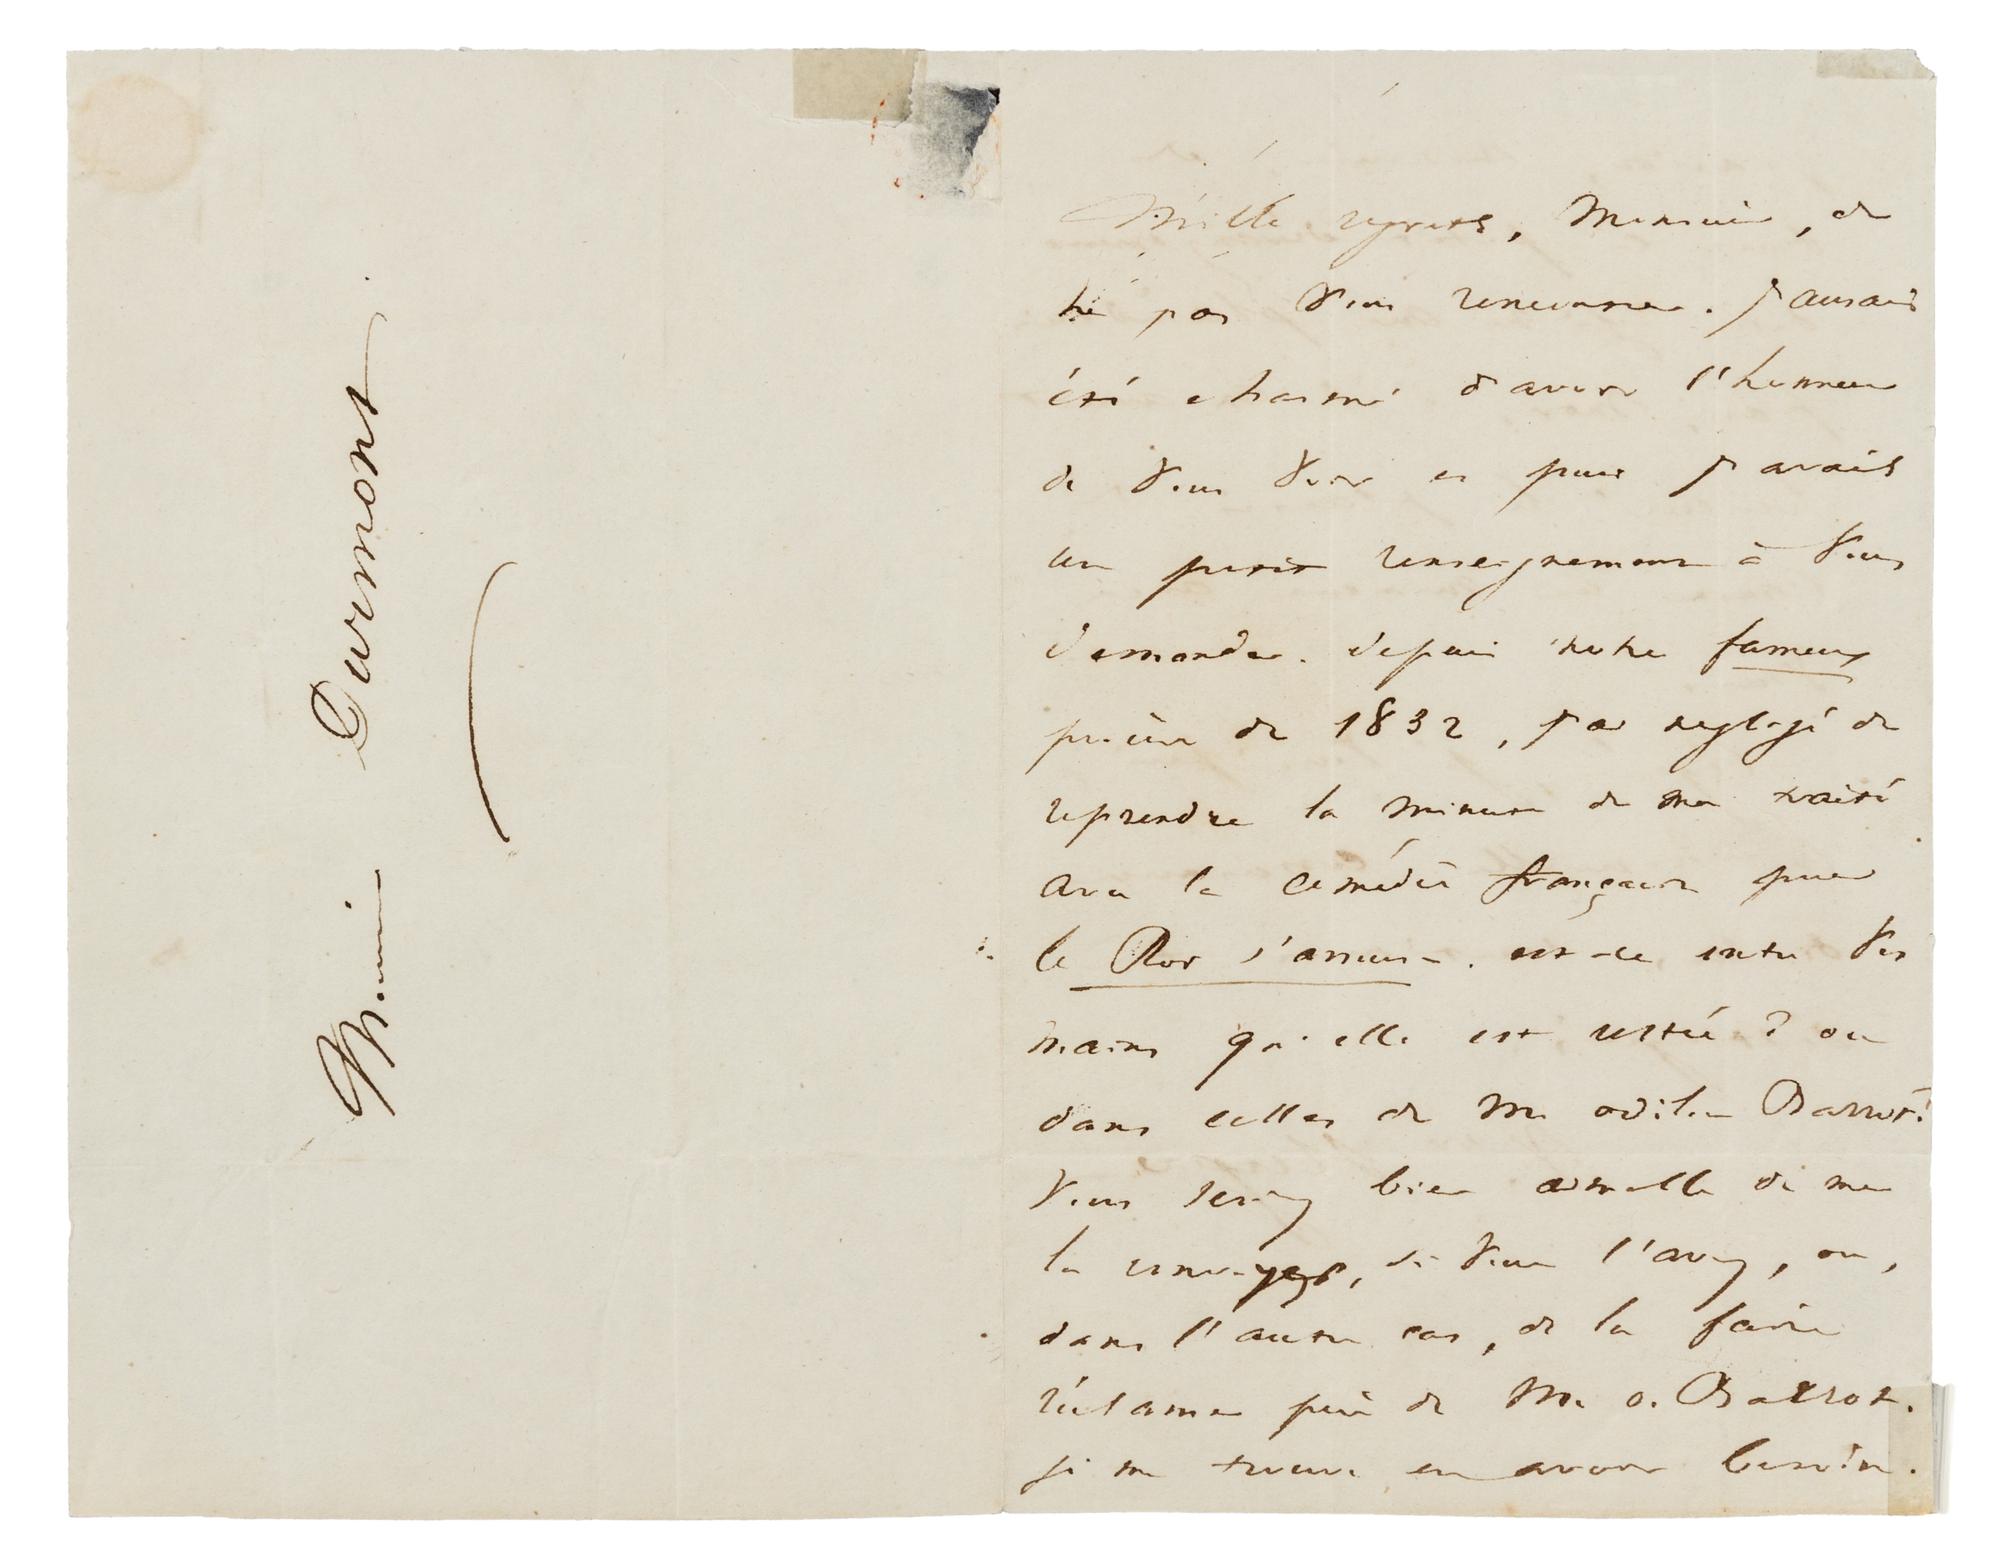 Monsieur Durmont
Mille regrets, Monsieur, de
ne pas vous rencontrer. J'aurais
été charmé d'avoir l'honneur
de vous voir et puis j'avais
un petit renseignement à vous
demander. depuis notre fameux
procès de 1832, j'ai négligé de
reprendre la minute de mon traité
avec la comédie française pour
le Roi s'amuse. est-ce entre vos
mains qu'elle est restée ? ou
dans celles de Mr odilon Barrot ?
Vous seriez bien aimable de me
la renvoyer, si vous l'avez, ou,
dans l'autre cas, de la faire
réclamer près de Mr O. Barrot.
je me trouve en avoir besoin.